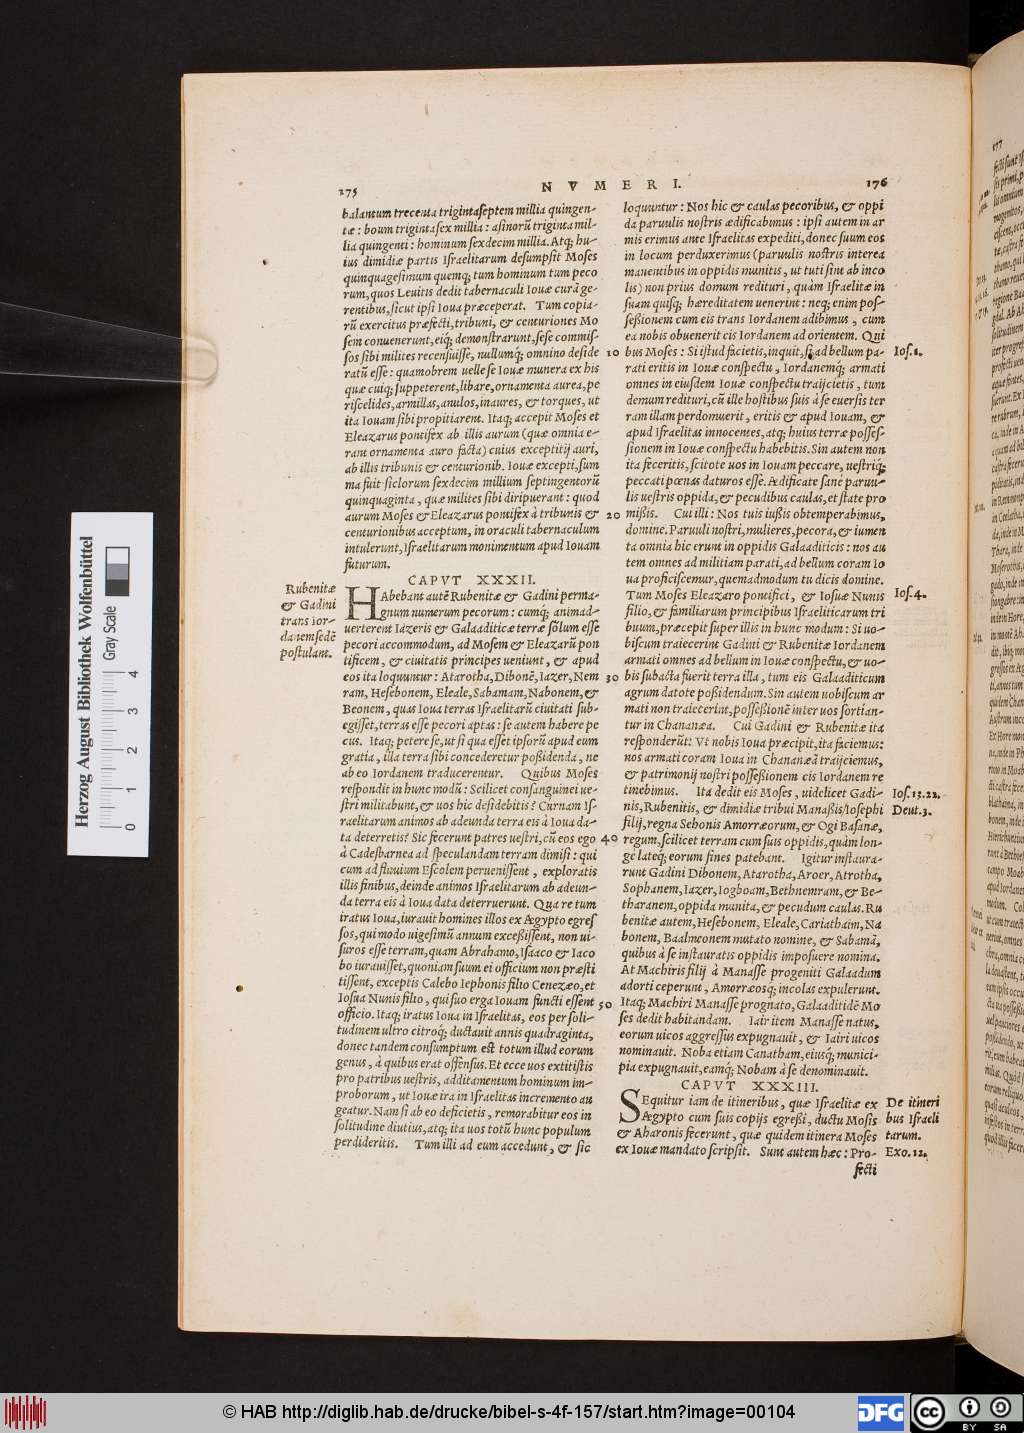 175
NVMERI.
176
balantum trecenta trigintaseptem millia quingen-
tæ: boum trigintasex millia: asinorũ triginta mil-
lia quingenti: hominum sexdecim millia. Atq; hu-
ius dimidiæ partis Israelitarum desumpsit Moses
quinquagesimum quemq; tum hominum tum peco
rum, quos Leuitis dedit tabernaculi Iouæ curã ge-
rentibus, sicut ipsi Ioua præceperat. Tum copia-
rũ exercitus præfecti, tribuni, & centuriones Mo
sem conuenerunt, eiq; demonstrarunt, sese commis-
sos sibi milites recensuisse, nullumq; omnino deside
ratũ esse: quamobrem uelle se Iouæ munera ex his
quæ cuiq; suppeterent, libare, ornamenta aurea, pe
riscelides, armillas, anulos, inaures, & torques, ut
ita Iouam sibi propitiarent. Itaq; accepit Moses et
Eleazarus pontifex ab illis aurum (quæ omnia e-
rant ornamenta auro facta) cuius exceptitij auri,
ab illis tribunis & centurionib. Iouæ excepti, sum
ma fuit siclorum sexdecim millium septingentorũ
quinquaginta, quæ milites sibi diripuerant: quod
aurum Moses & Eleazarus pontifex à tribunis &
centurionibus acceptum, in oraculi tabernaculum
intulerunt, Israelitarum monimentum apud Iouam
futurum.
CAPVT XXXII.
Rubenitæ
& Gadini
trans Ior-
danem sedẽ
postulant.
HAbebant autẽ Rubenitæ & Gadini perma-
gnum numerum pecorum: cumq; animad-
uerterent Iazeris & Galaaditicæ terræ solum esse
pecori accommodum, ad Mosem & Eleazarũ pon
tificem, & ciuitatis principes ueniunt, & apud
eos ita loquuntur: Atarotha, Dibonẽ, Iazer, Nem
ram, Hesebonem, Eleale, Sabamam, Nabonem, &
Beonem, quas Ioua terras Israelitarũ ciuitati sub-
egisset, terras esse pecori aptas: se autem habere pe
cus. Itaq; petere se, ut si qua esset ipsorũ apud eum
gratia, illa terra sibi concederetur poßidenda, ne
ab eo Iordanem traducerentur. Quibus Moses
respondit in hunc modũ: Scilicet consanguinei ue-
stri militabunt, & uos hic desidebitis? Curnam Is-
raelitarum animos ab adeunda terra eis à Ioua da-
ta deterretis? Sic fecerunt patres uestri, cũ eos ego
à Cadesbarnea ad speculandam terram dimisi: qui
cum ad fluuium Escolem peruenissent, exploratis
illis finibus, deinde animos Israelitarum ab adeun-
da terra eis à Ioua data deterruerunt. Qua re tum
iratus Ioua, iurauit homines illos ex Ægypto egres
sos, qui modo uigesimũ annum exceßissent, non ui-
suros esse terram, quam Abrahamo, Isaaco & Iaco
bo iurauisset, quoniam suum ei officium non præsti
tissent, exceptis Calebo Iephonis filio Cenezæo, et
Iosua Nunis filio, qui suo erga Iouam functi essent
officio. Itaq; iratus Ioua in Israelitas, eos per soli-
tudinem ultro citroq; ductauit annis quadraginta,
donec tandem consumptum est totum illud eorum
genus, à quibus erat offensus. Et ecce uos extitistis
pro patribus uestris, additamentum hominum im-
proborum, ut Iouæ ira in Israelitas incremento au
geatur. Nam si ab eo deficietis, remorabitur eos in
solitudine diutius, atq; ita uos totũ hunc populum
perdideritis. Tum illi ad eum accedunt, & sic
10
20
30
40
50
loquuntur: Nos hic & caulas pecoribus, & oppi
da paruulis nostris ædificabimus: ipsi autem in ar
mis erimus ante Israelitas expediti, donec suum eos
in locum perduxerimus (paruulis nostris interea
manentibus in oppidis munitis, ut tuti sint ab inco
lis) non prius domum redituri, quàm Israelitæ in
suam quisq; hæreditatem uenerint: neq; enim pos-
seßionem cum eis trans Iordanem adibimus, cum
ea nobis obuenerit cis Iordanem ad orientem. Qui
bus Moses: Si istud facietis, inquit, si ad bellum pa-
rati eritis in Iouæ conspectu, Iordanemq; armati
omnes in eiusdem Iouæ conspectu traijcietis, tum
demum redituri, cũ ille hostibus suis à se euersis ter
ram illam perdomuerit, eritis & apud Iouam, &
apud Israelitas innocentes, atq; huius terræ posses-
sionem in Iouæ conspectu habebitis. Sin autem non
ita feceritis, scitote uos in Iouam peccare, uestriq;
peccati pœnas daturos esse. Ædificate sanè paruu-
lis uestris oppida, & pecudibus caulas, et state pro
mißis. Cui illi: Nos tuis iußis obtemperabimus,
domine. Paruuli nostri, mulieres, pecora, & iumen
ta omnia hic erunt in oppidis Galaaditicis: nos au
tem omnes ad militiam parati, ad bellum coram Io
ua proficiscemur, quemadmodum tu dicis domine.
Tum Moses Eleazaro pontifici, & Iosuæ Nunis
filio, & familiarum principibus Israeliticarum tri
buum, præcepit super illis in hunc modum: Si uo-
biscum traiecerint Gadini & Rubenitæ Iordanem
armati omnes ad bellum in Iouæ conspectu, & uo-
bis subacta fuerit terra illa, tum eis Galaaditicum
agrum datote poßidendum. Sin autem uobiscum ar
mati non traiecerint, posseßionẽ inter uos sortian-
tur in Chananæa. Cui Gadini & Rubenitæ ita
responderũt: Vt nobis Ioua præcipit, ita faciemus:
nos armati coram Ioua in Chananæã traijciemus,
& patrimonij nostri posseßionem cis Iordanem re
tinebimus. Ita dedit eis Moses, uidelicet Gadi-
nis, Rubenitis, & dimidiæ tribui Manaßis Iosephi
filij, regna Sehonis Amorræorum, & Ogi Basanæ,
regum, scilicet terram cum suis oppidis, quàm lon-
ge lateq; eorum fines patebant. Igitur instaura-
runt Gadini Dibonem, Atarotha, Aroer, Atrotha,
Sophanem, Iazer, Iogboam, Bethnemram, & Be-
tharanem, oppida munita, & pecudum caulas. Ru
benitæ autem, Hesebonem, Eleale, Cariathaim, Na
bonem, Baalmeonem mutato nomine, & Sabamã,
quibus à se instauratis oppidis imposuere nomina.
At Machiris filij à Manasse progeniti Galaadum
adorti ceperunt, Amorræosq; incolas expulerunt.
Itaq; Machiri Manasse prognato, Galaaditidẽ Mo
ses dedit habitandam. Iair item Manasse natus,
eorum uicos aggressus expugnauit, & Iairi uicos
nominauit. Noba etiam Canatham, eiusq; munici-
pia expugnauit, eamq; Nobam à se denominauit.
CAPVT XXXIII.
SEquitur iam de itineribus, quæ Israelitæ ex
Ægypto cum suis copijs egreßi, ductu Mosis
& Aharonis fecerunt, quæ quidem itinera Moses
ex Iouæ mandato scripsit. Sunt autem hæc: Pro-
fecti
Ios. 1.
Ios. 4.
Ios. 13. 22.
Deut. 3.
De itineri
bus Israeli
tarum.
Exo. 12.
177
Herzog August Bibliothek Wolfenbüttel
Gray Scale
0 1 2 3 4
© HAB http://diglib.hab.de/drucke/bibel-s-4f-157/start.htm?image=00104
DFG
cc
BY SA